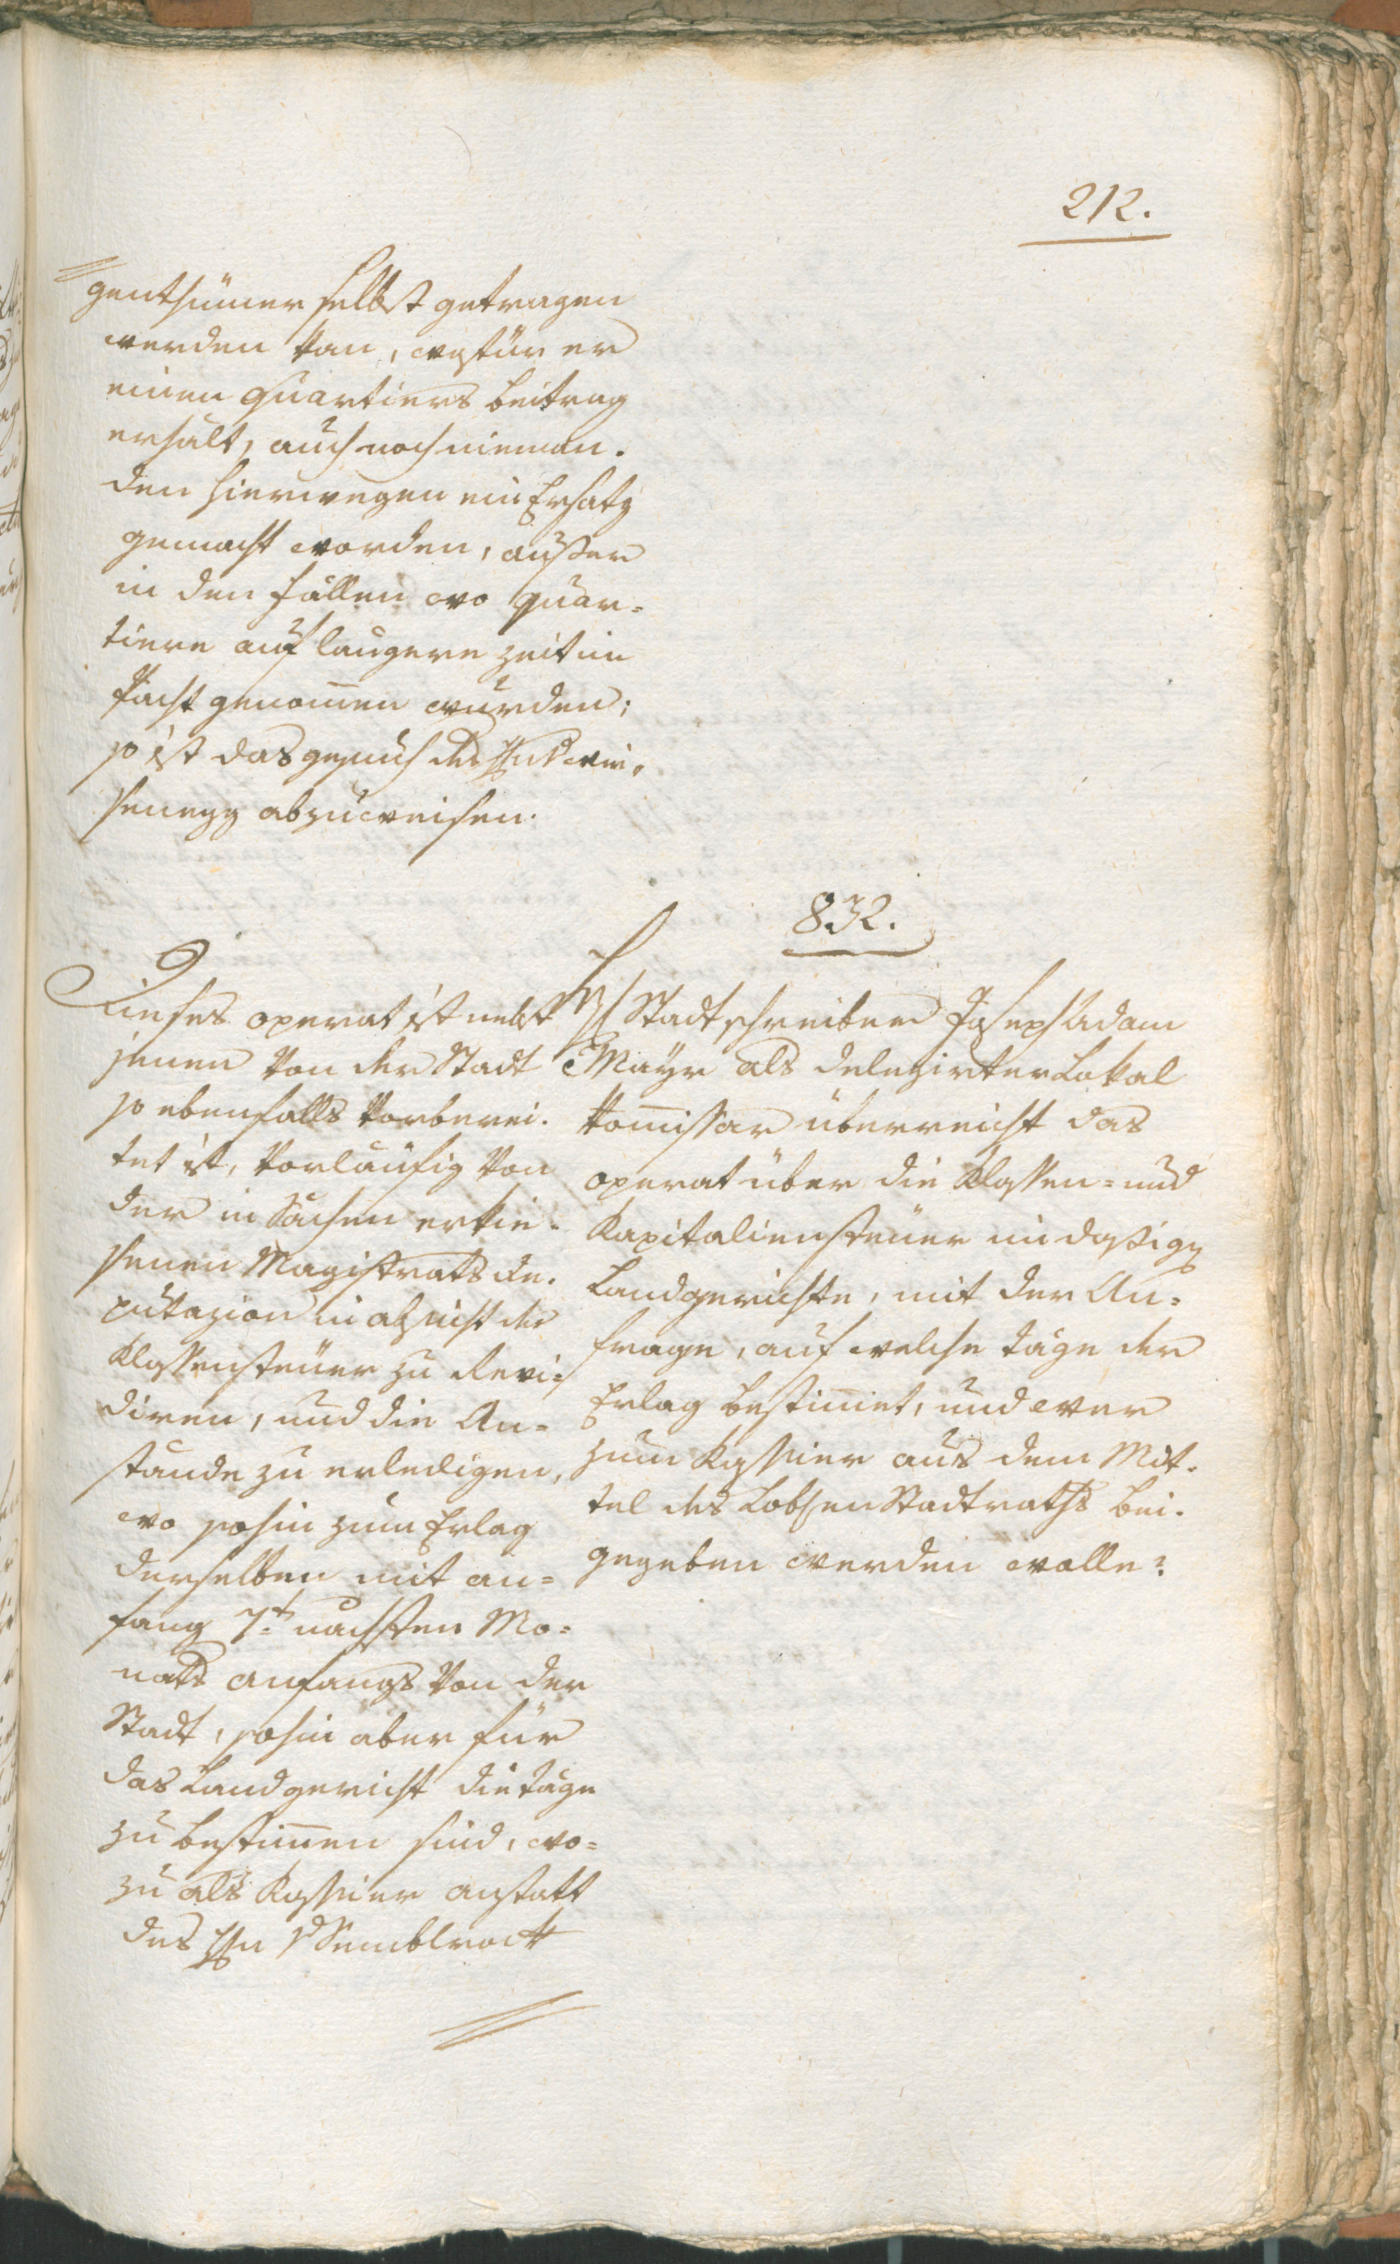 212.
genthümer selbst getragen
werden kan, wofür er
einen Quartiers beitrag
erhält, auch noch nieman.
den hierwegen ein Ersatz
gemacht worden, ausser
in den fällen wo quar=
tiere auf längere zeit in
Pacht genomen wurden;
so ist das gesuch des Hn v Win,
senegg abzuweisen.
832.
Dieses operat ist nebst
jenen von der Stadt
so ebenfalls vorberei.
tet ist, vorläufig von
der in Sachen erkie=
senen Magistrats de.
putazion in absicht der
Klassensteuer zu revi=
diren, und die An=
stände zu erledigen,
wo sohin zum Erlag
derselben mit an=
fang 7t. nächsten Mo=
nats anfangs von der
Stadt, sohin aber für
das Landgericht die täge
zu bestimen sind, wo=
zu als Kassier anstatt
des Hn v Semblrock
H Stadtschreiber Joseph Adam
Mayr als delegirter Lokal
Komissar überreicht das
operat über die Klassen= und
Kapitaliensteuer im dassigen
Landgerichte, mit der An=
frage, auf welche täge der
Erlag bestimmet, und wer
zum Kassier aus dem Mit.
tel des Löbchen Stadtraths bei.
gegeben werden wolle?